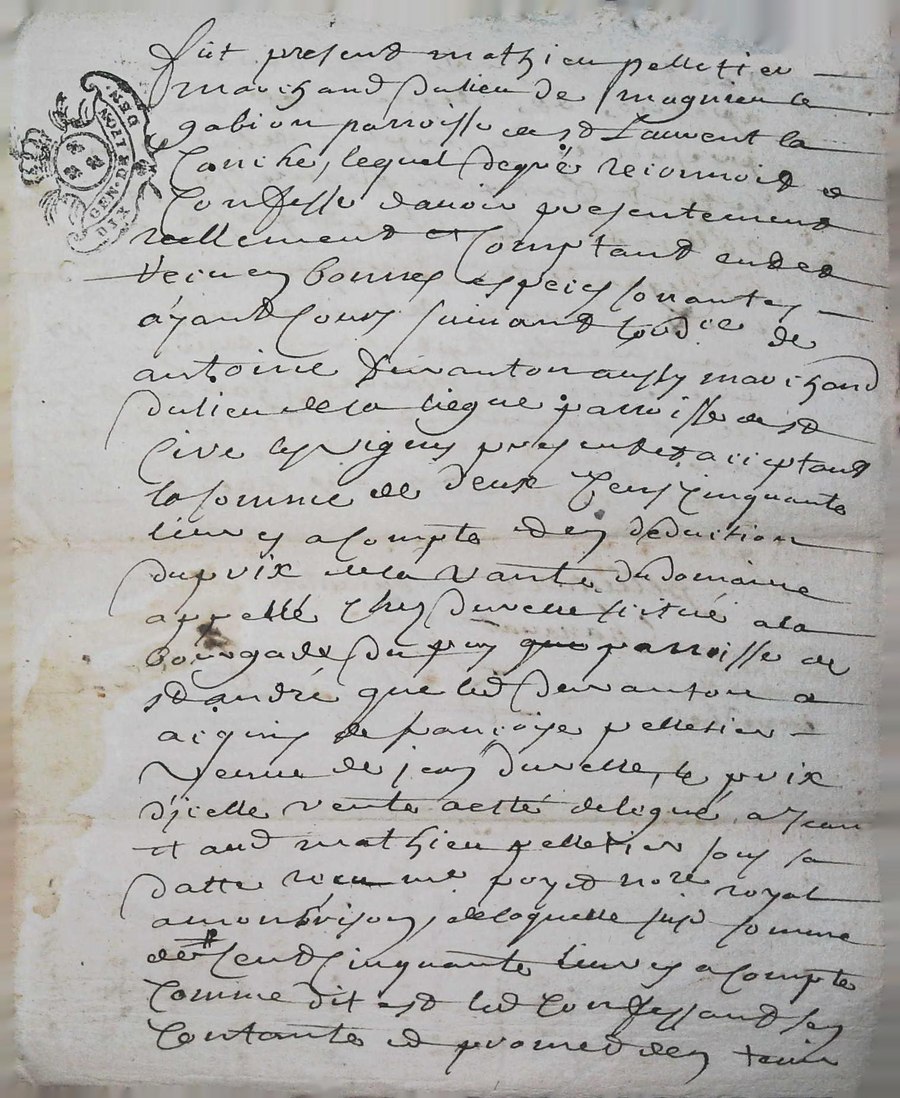 GEN. DE LYON
DIX DEN.
fut présent mathieu pelletier
marchand du lieu de magnieu le
gabion parroisse de st Laurent la
Conche, lequel de gré reconnoit et
Confesse d'avoir presentement
reellement et Comptant eu et
receu en bonnes espeices sonantes
ayant Cours suivant de
antoine Duvanton aussy marchand
du lieu de la Liegue parroisse de st
Cire les vignes present et acceptant
la somme de deux Cens Cinquante
livres a Compte et en deduction
du prix de la vante du domaine
appellé Chez Duvelle scitué a la
bourgade du puy parroisse de
st andré que led Duvanton a
acquis de françoise pelletier
Veuve de jean Duvelle, le prix
d'jcelle vente a esté delegué a Jean
et aud mathieu pelletier sous sa
datte receu me poyet nore royal
a monbrison, de laquelle susd somme
de Cent Cinquante livres a Compte
Comme dit est led Confessant sen
Contante et promet den tenir